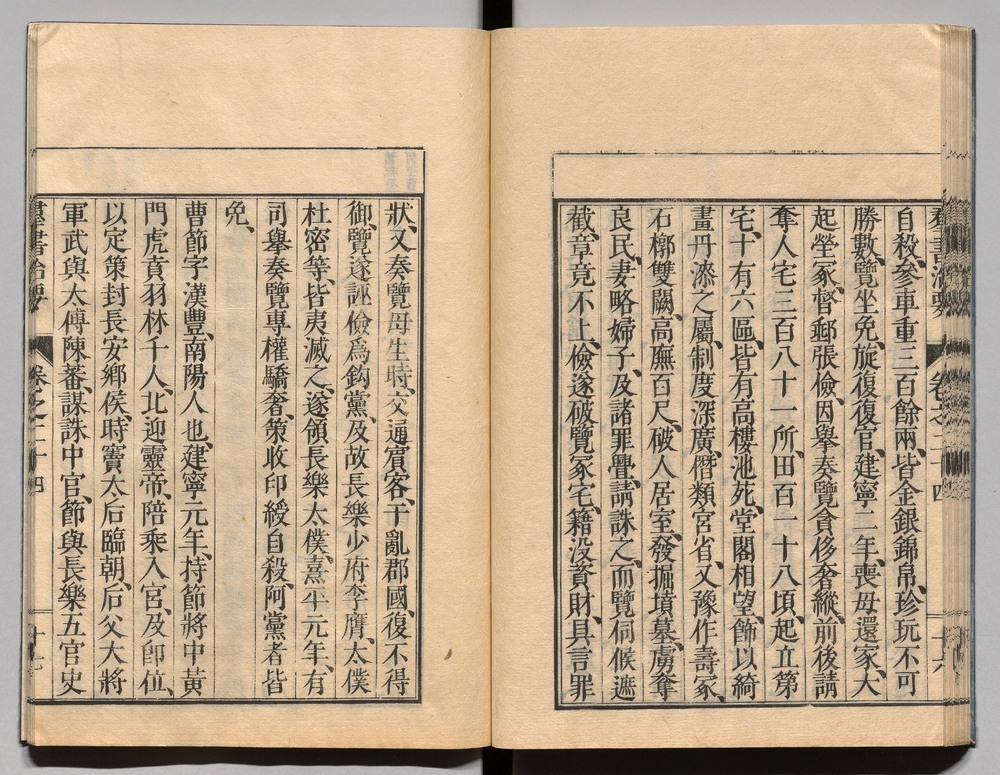 羣書治要 卷之二十四 十六
自殺、參車重三百餘兩、皆金銀錦帛、珍玩不可
勝數、覽坐免、旋復復官、建寧二年、喪母還家、大
起塋冢、督郵張儉、因舉奏覽貪侈奢縱、前後請
奪人宅三百八十一所、田百一十八頃、起立第
宅、十有六區、皆有高樓池苑、堂閣相望、飾以綺
畫丹漆之屬、制度深廣、僭類宮省、又豫作壽冢、
石槨雙闕、高廡百尺、破人居室、發掘墳墓、虜奪
良民、妻略婦子、及諸罪釁、請誅之、而覽伺候遮
截、章竟不上、儉遂破覽冢宅、籍沒資財、具言罪
狀、又奏覽母生時、交通賓客、干亂郡國、復不得
御、覽遂誣儉爲鈎黨、及故長樂少府李膺、太僕
杜密等、皆夷滅之、遂領長樂太僕、熹平元年、有
司舉奏覽專權驕奢、策收印綬自殺、阿黨者皆
免、
曹節字漢豐、南陽人也、建寧元年、持節將中黃
門虎賁羽林千人、北迎靈帝、陪乘入宮、及卽位、
以定策封長安鄉侯、時竇太后臨朝、后父大將
軍武與太傅陳蕃、謀誅中官、節與長樂五官史
羣書治要 卷之二十四 十七